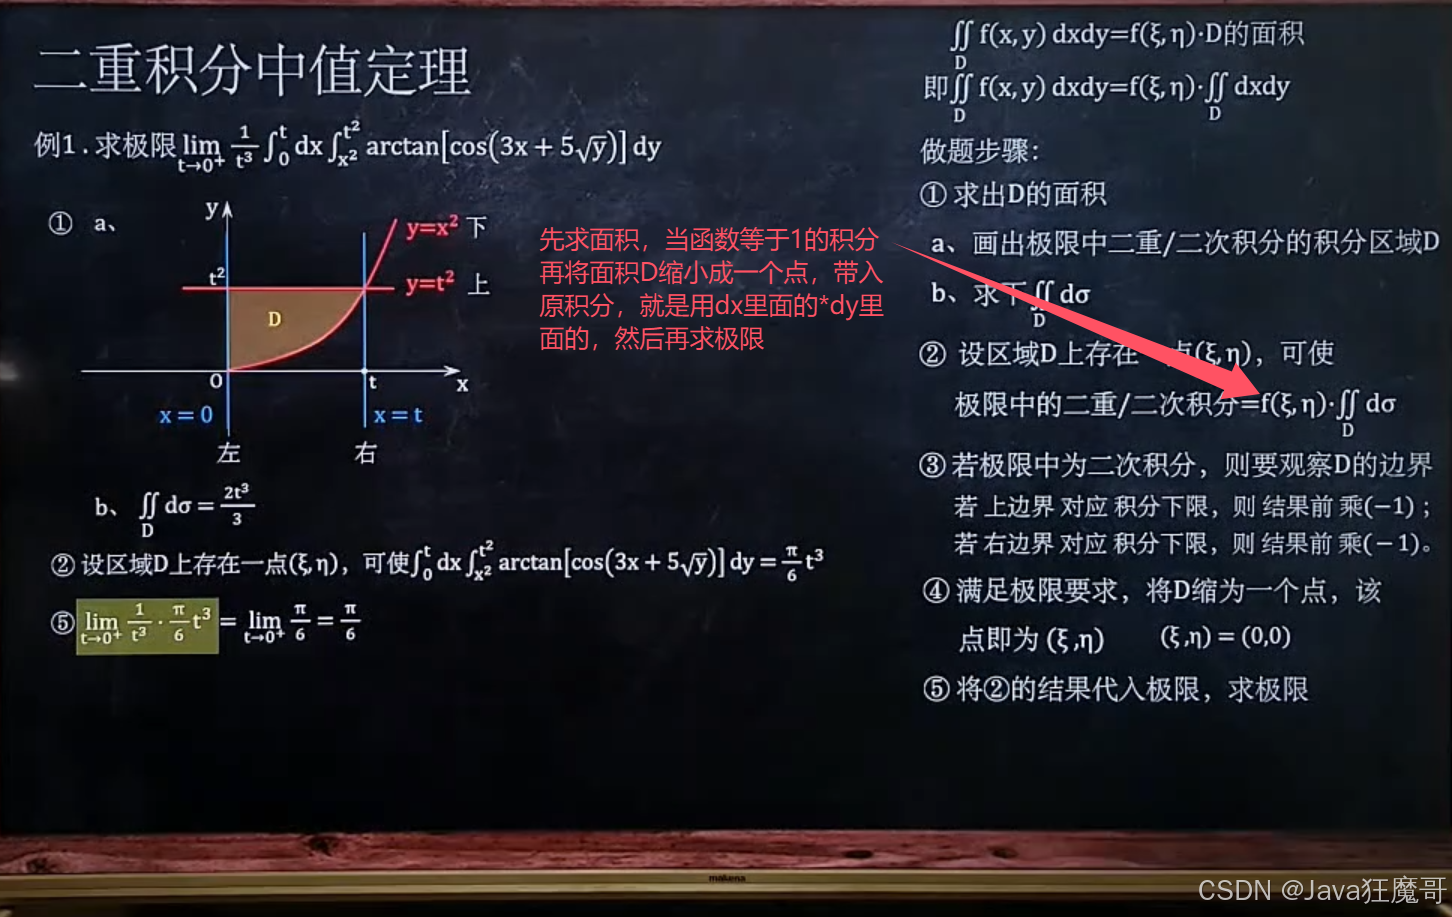 二重积分中值定理
例1 . 求极限 lim t→0⁺ 1/t³ ∫₀ᵗ dx ∫ₓ₂^t² arctan[cos(3x + 5√y)] dy
① a、
y
y=x² 下
t²
y=t² 上
D
0
t
x
x = 0
x = t
左
右
b、 ∬_D dσ = 2t³/3
② 设区域D上存在一点(ξ,η)，可使∫₀ᵗ dx ∫ₓ₂^t² arctan[cos(3x + 5√y)] dy = π/6 t³
⑤ lim t→0⁺ 1/t³ · π/6 t³ = lim t→0⁺ π/6 = π/6
先求面积，当函数等于1的积分
再将面积D缩小成一个点，带入
原积分，就是用dx里面的*dy里
面的，然后再求极限
∬_D f(x, y) dxdy=f(ξ, η)·D的面积
即∬_D f(x, y) dxdy=f(ξ, η)·∬_D dxdy
做题步骤：
① 求出D的面积
a、画出极限中二重/二次积分的积分区域D
b、求下∬_D dσ
② 设区域D上存在 点(ξ,η)，可使
极限中的二重/二次积分=f(ξ, η)·∬_D dσ
③ 若极限中为二次积分，则要观察D的边界
若 上边界 对应 积分下限，则 结果前 乘(−1)；
若 右边界 对应 积分下限，则 结果前 乘(−1)。
④ 满足极限要求，将D缩为一个点，该
点即为 (ξ ,η) (ξ ,η) = (0,0)
⑤ 将②的结果代入极限，求极限
makena
CSDN @Java狂魔哥